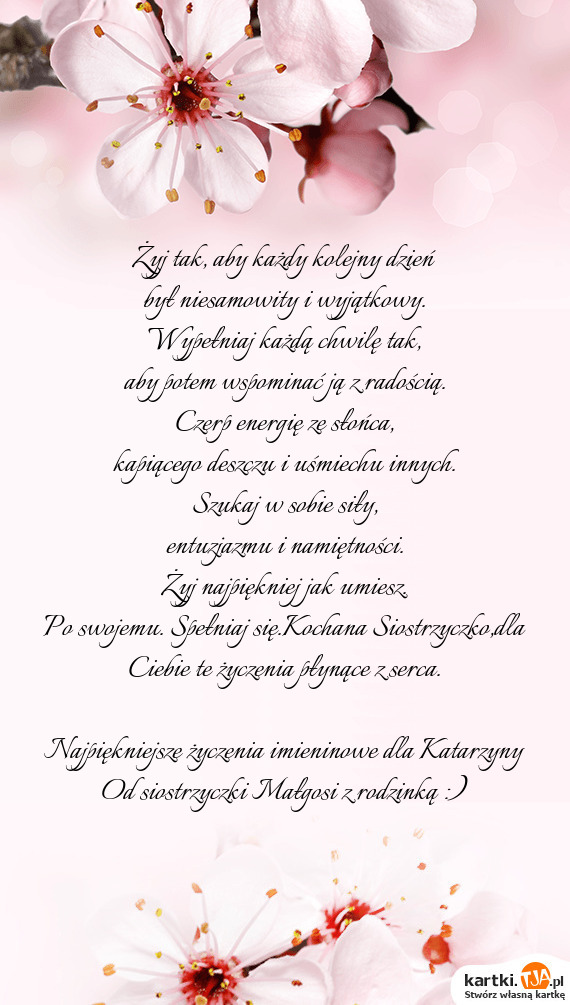 Żyj tak, aby każdy kolejny dzień
był niesamowity i wyjątkowy.
Wypełniaj każdą chwilę tak,
aby potem wspominać ją z radością.
Czerp energię ze słońca,
kapiącego deszczu i uśmiechu innych.
Szukaj w sobie siły,
entuzjazmu i namiętności.
Żyj najpiękniej jak umiesz.
Po swojemu. Spełniaj się.Kochana Siostrzyczko,dla
Ciebie te życzenia płynące z serca.
Najpiękniejsze życzenia imieninowe dla Katarzyny
Od siostrzyczki Małgosi z rodzinką :)
kartki.TJA.pl
Stwórz własną kartkę